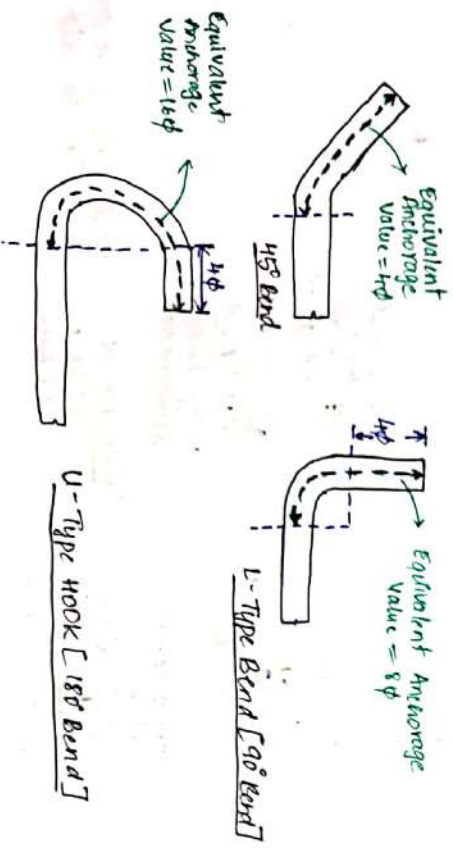 Equivalent
Anchorage
value = 4ϕ
45° Bend
4ϕ
Equivalent Anchorage
value = 8ϕ
L-Type Bend [90° Bend]
Equivalent
Anchorage
value = 16ϕ
4ϕ
U-Type HOOK [180° Bend]